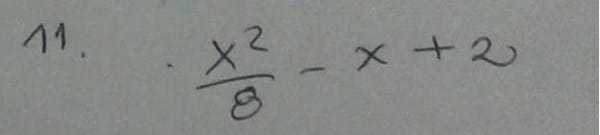 11. x²/8 - x + 2